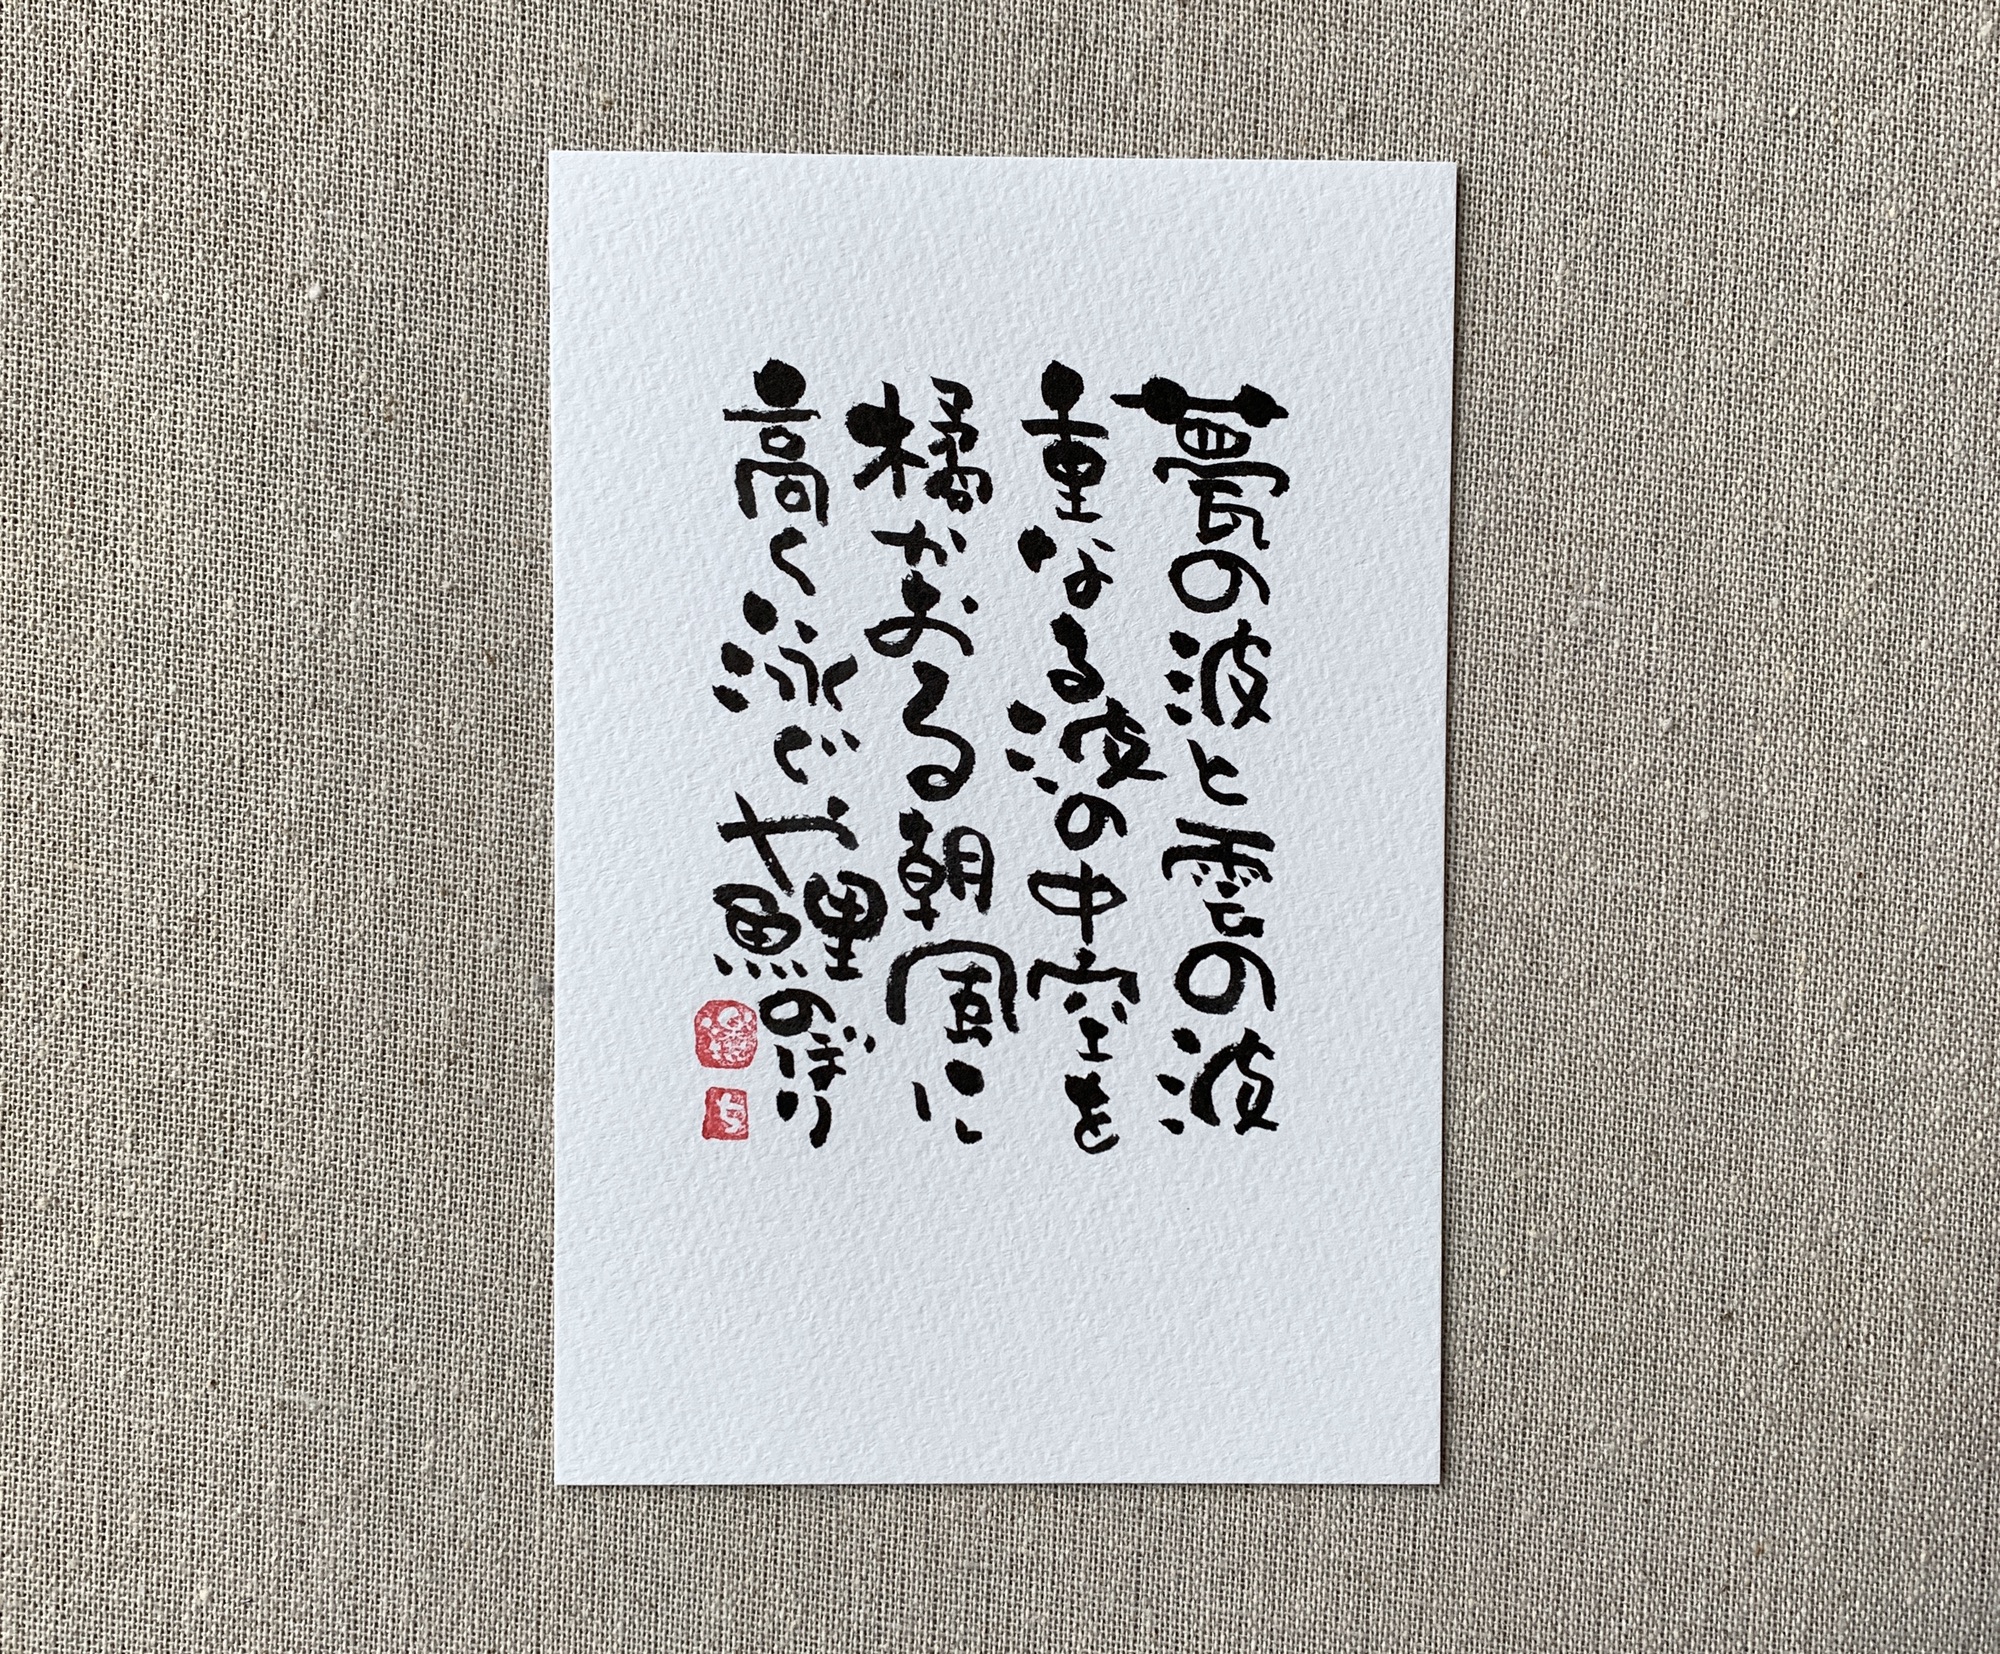 甍の波と雲の波
重なる波の中空を
橘かおる朝風に
高く泳ぐや鯉のぼり